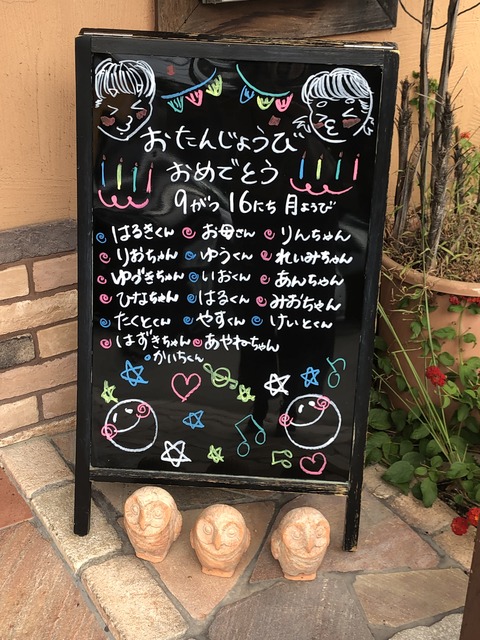 おたんじょうび
おめでとう
9がつ 16にち 月ようび
はるきくん お母さん りんちゃん
りおちゃん ゆうくん れいみちゃん
ゆづきちゃん いおくん あんちゃん
ひなちゃん はるくん みおちゃん
たくとくん やすくん けいとくん
はずきちゃん あやねちゃん
かいちくん